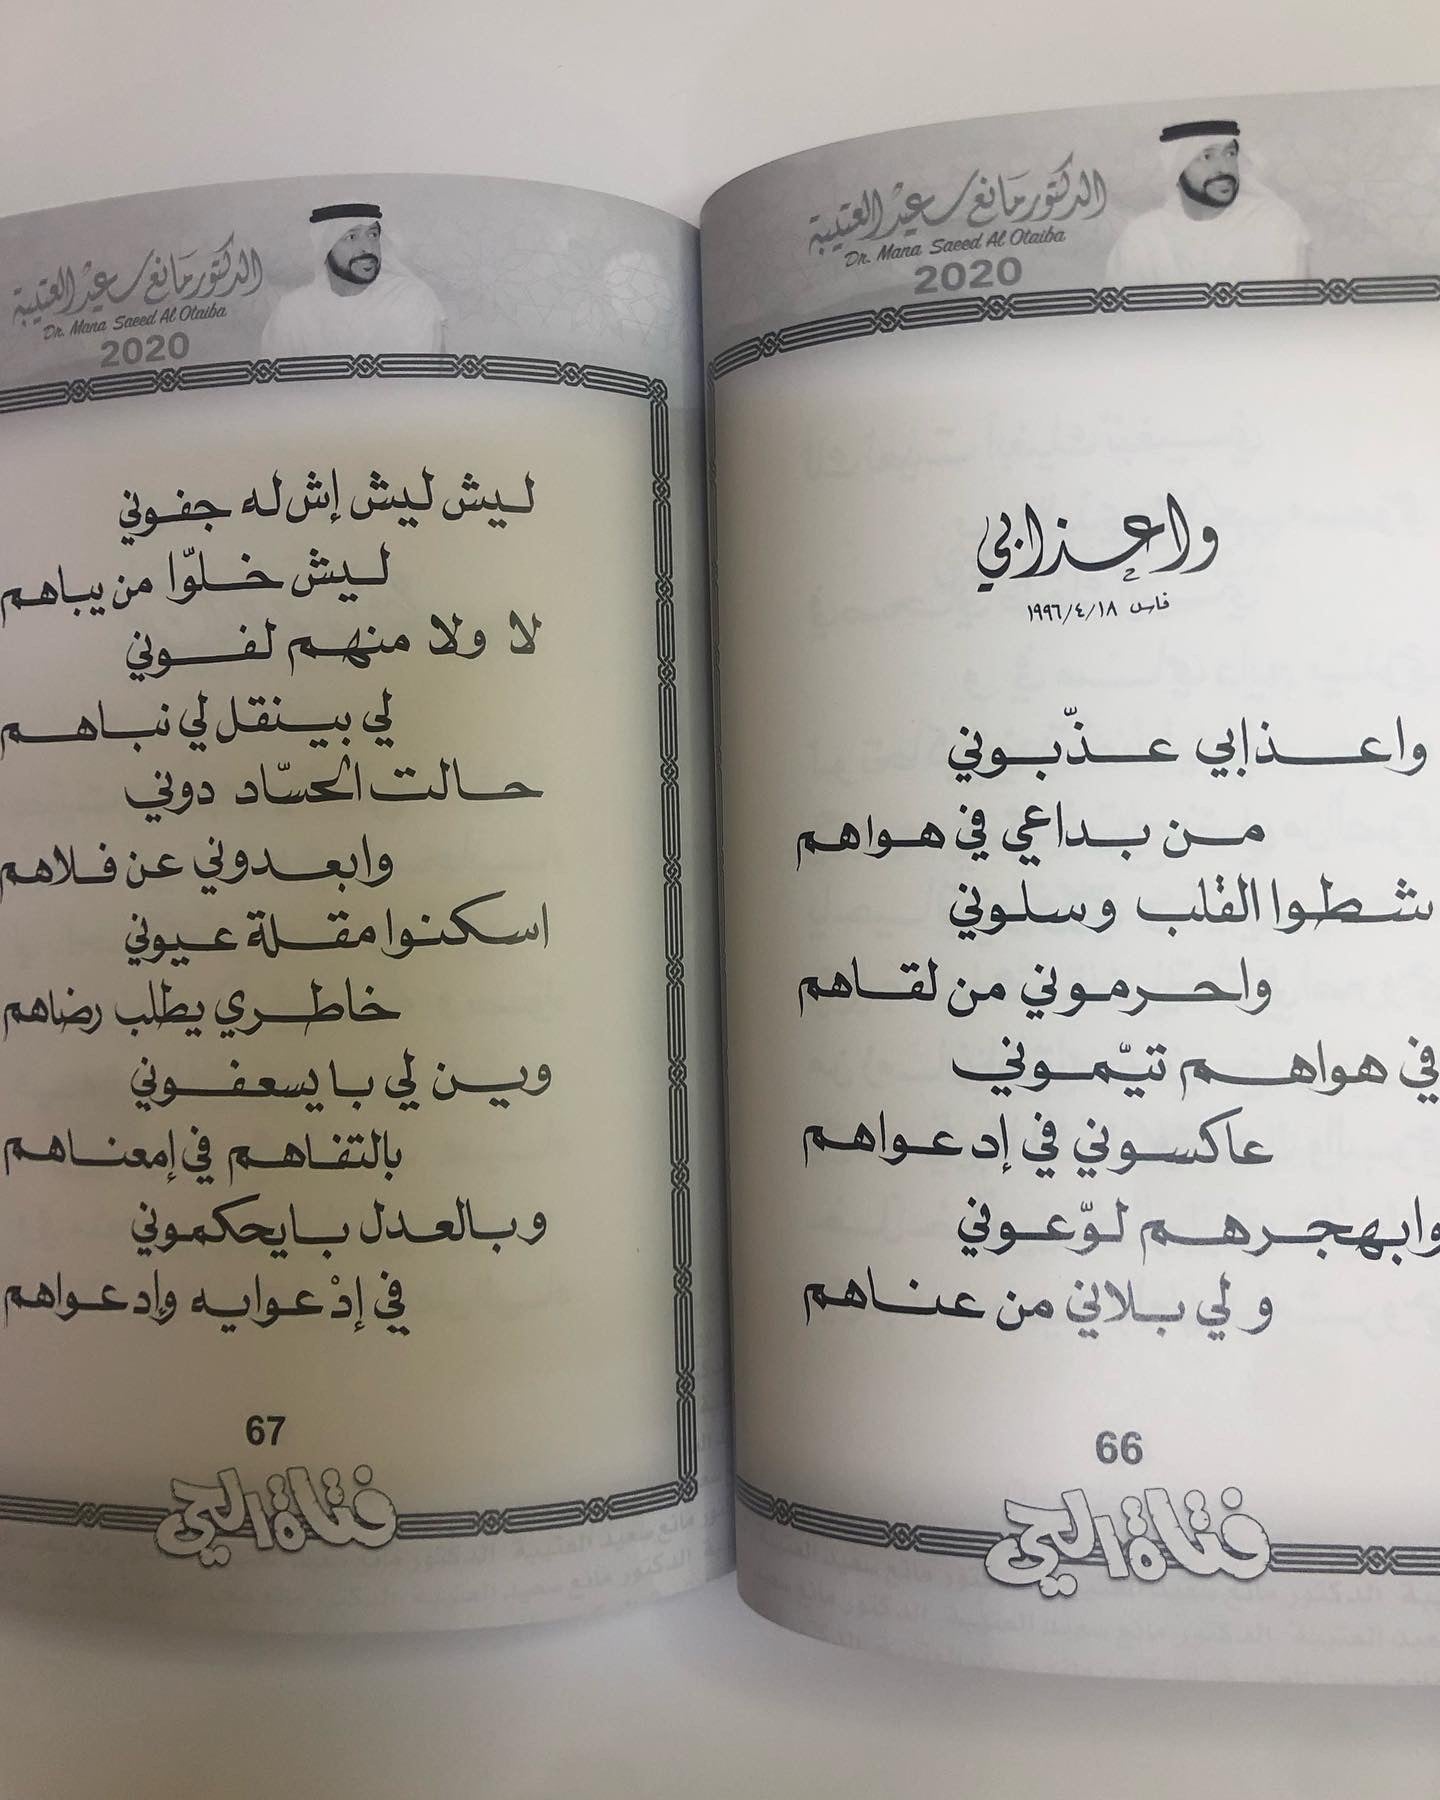 الدكتور مانع سعيد العتيبة
Dr. Mana Saeed Al Otaiba
2020
واعذابي
فاس ١٩٩٦/٤/١٨
واعذابي عذّبوني
من بداعي في هواهم
شطوا القلب وسلوني
واحرموني من لقاهم
في هواهم تيّموني
عاكسوني في إدعواهم
وابهجرهم لوّعوني
ولي بلاني من عناهم
66
فتاة الحي
الدكتور مانع سعيد العتيبة
Dr. Mana Saeed Al Otaiba
2020
ليش ليش إش له جفوني
ليش خلوّا من يباهم
لا ولا منهم لفوني
لي بينقل لي نباهم
حالت الحسّاد دوني
وابعدوني عن فلاهم
اسكنوا مقلة عيوني
خاطري يطلب رضاهم
وين لي با يسعفوني
بالتفاهم في إمعناهم
وبالعدل بايحكموني
في إدْعوايه وإدعواهم
67
فتاة الحي